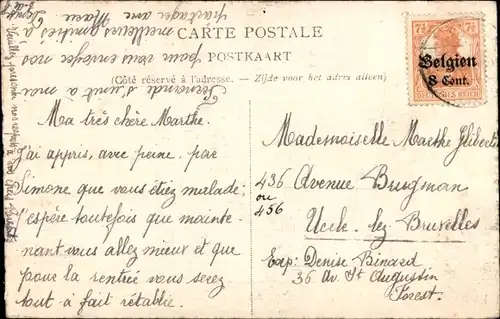 CARTE POSTALE
POSTKAART
(Côté réservé à l'adresse. - Zijde voor het adres alleen)
7½ 7½
Belgien
8 Cent.
DEUTSCHES REICH
Ma très chère Marthe.
J'ai appris, avec peine, par
Simone que vous étiez malade;
j'espère toutefois que mainte-
nant vous allez mieux et que
pour la rentrée vous serez
tout à fait rétablie.
Fernande s'unit à moi
pour vous envoyer nos
meilleures amitiés à
partager avec Marie
Mademoiselle Marthe
436 Avenue Brugman
ou
456
Uccle-lez-Bruxelles
Exp: Denise Binard
36 Av. St Augustin
Forest.